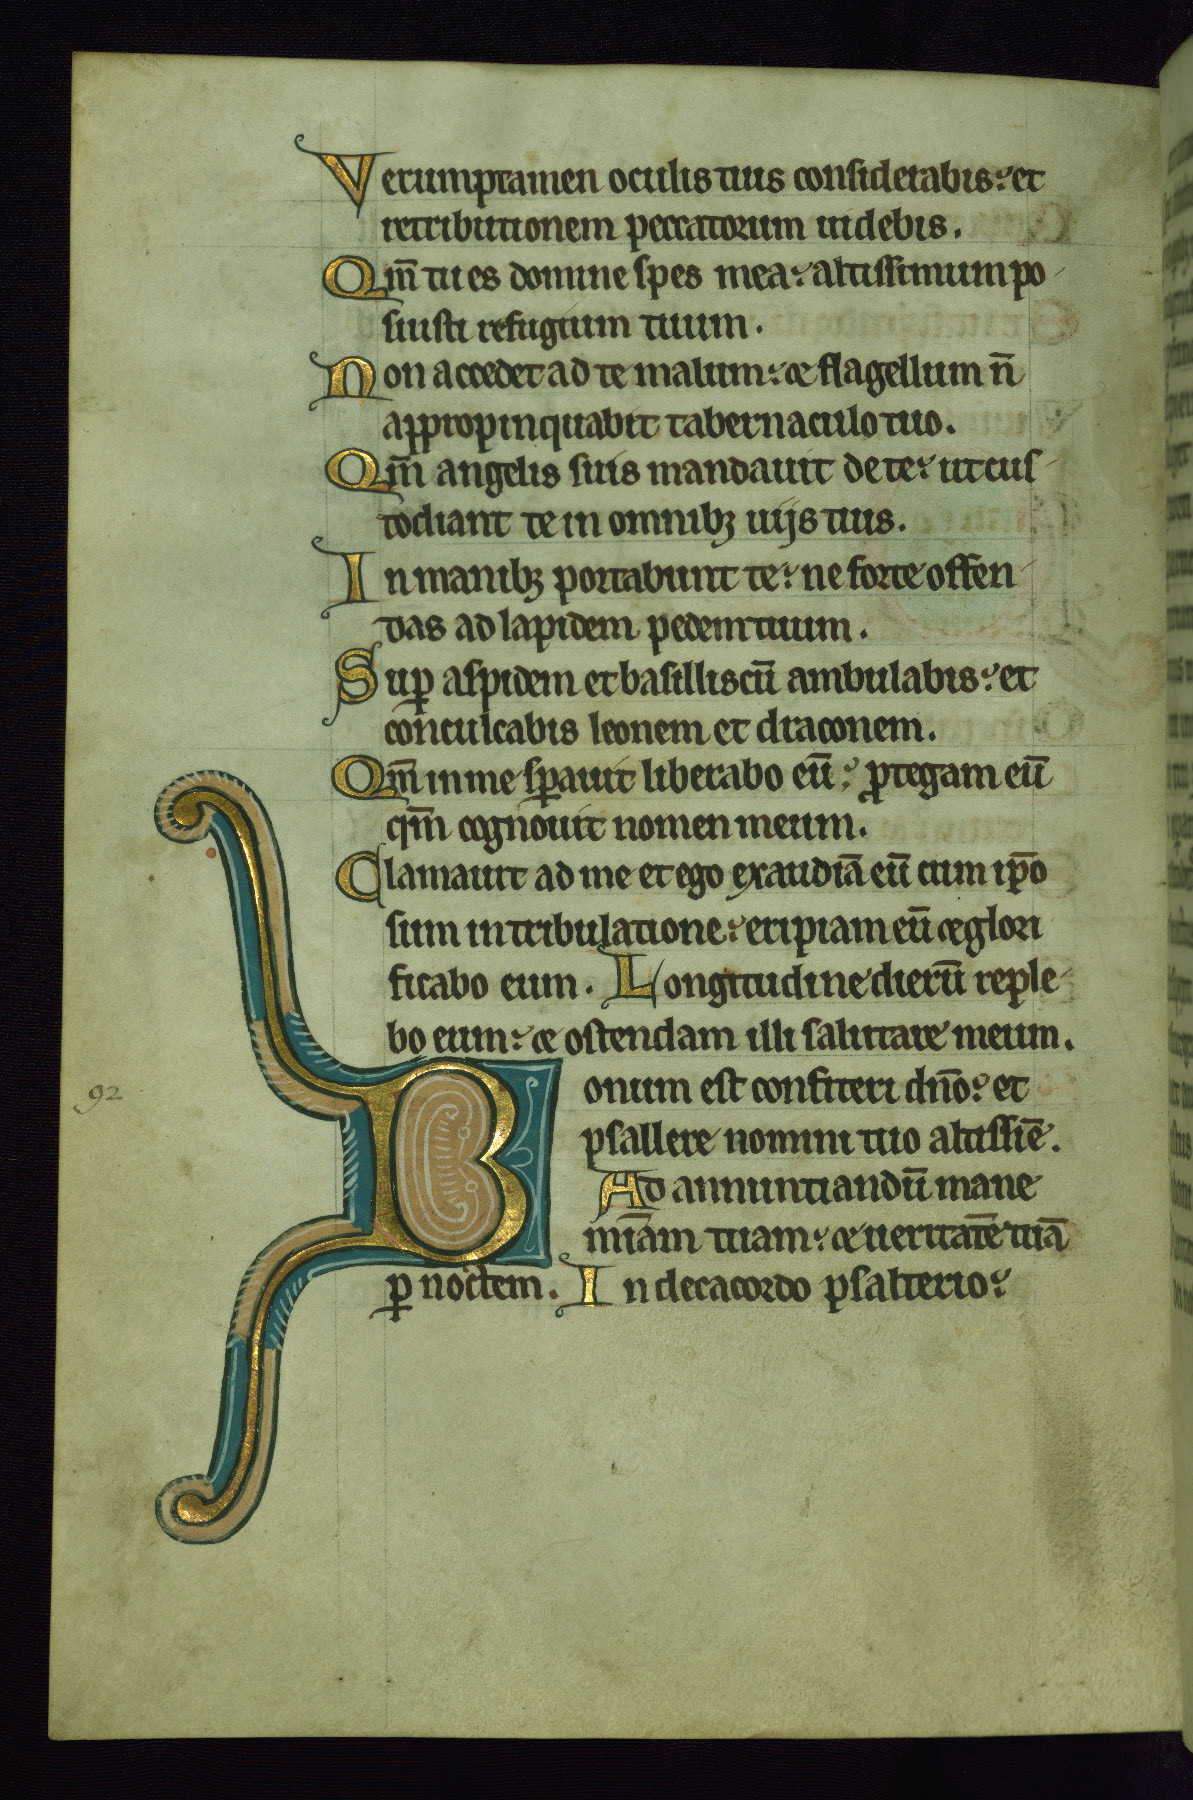 Verumptamen oculis tuis considerabis: et
retributionem peccatorum uidebis.
Qm̄ tu es domine spes mea: altissimum po
suisti refugium tuum.
Non accedet ad te malum: & flagellum n̄
appropinquabit tabernaculo tuo.
Qm̄ angelis suis mandauit de te: ut cus
todiant te in omnibꝫ uijs tuis.
In manibꝫ portabunt te: ne forte offen
das ad lapidem pedem tuum.
Suꝑ aspidem et basilliscū ambulabis: et
conculcabis leonem et draconem.
Qm̄ in me sꝑauit liberabo eū: ꝓtegam eū
qm̄ cognouit nomen meum.
Clamauit ad me et ego exaudiā eū cum ip̄o
sum in tribulatione: eripiam eū & glori
ficabo eum. Longitudine dierū reple
bo eum: & ostendam illi salutare meum.
Bonum est confiteri dn̄o: et
psallere nomini tuo altissīe.
Ad annuntiandū mane
mīam tuam: & ueritatē tuā
ꝑ noctem. In decacordo psalterio:
92